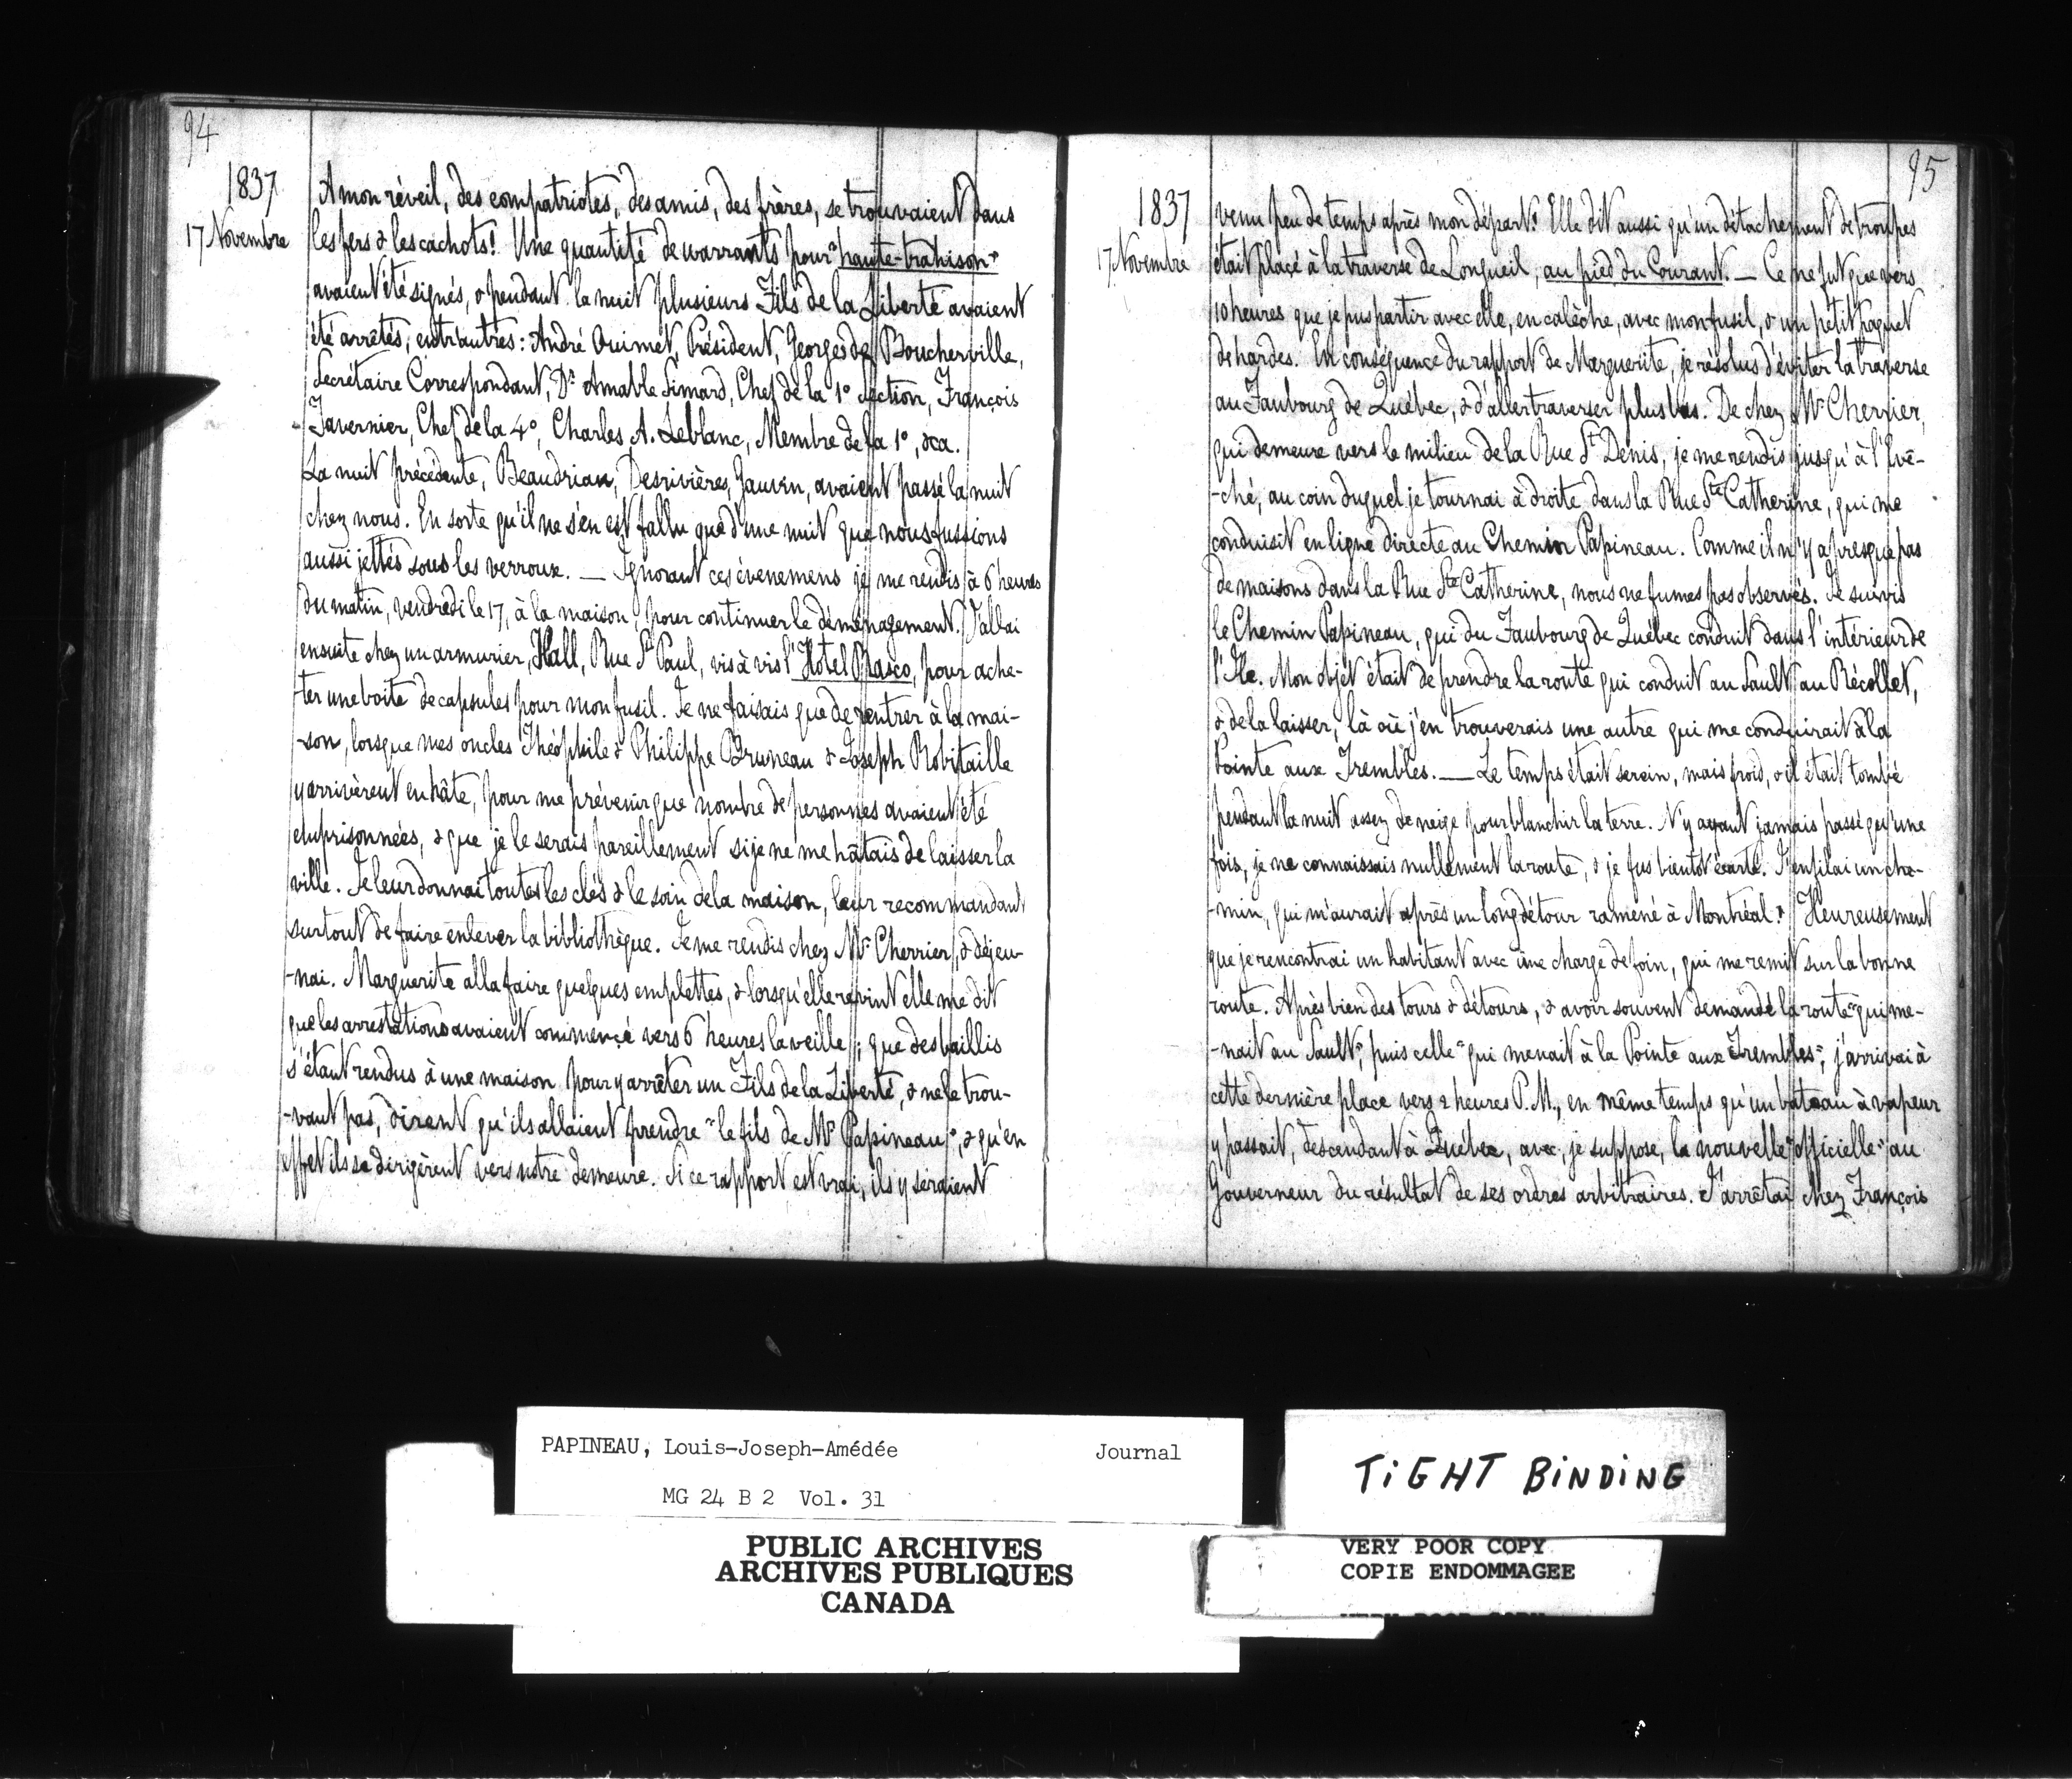 94
1837
17 Novembre
A mon réveil, des compatriotes, des amis, des frères, se trouvaient dans
les fers & les cachots! Une quantité de warrants pour "haute-trahison"
avaient été signés, & pendant la nuit plusieurs Fils de la Liberté avaient
été arrêtés, entr'autres: André Ouimet, Président, Georges de Boucherville,
Secrétaire Correspondant, Dr. Amable Simard, Chef de la 1º Section, François
Tavernier, Chef de la 4º, Charles A. Leblanc, Membre de la 1º, &ca.
La nuit précédente, Beaudriau, Desrivières, Gauvin, avaient passé la nuit
chez nous. En sorte qu'il ne s'en est fallu que d'une nuit que nous fussions
aussi jettés sous les verroux. — Ignorant ces évenemens je me rendis à 6 heures
du matin, vendredi le 17, à la maison pour continuer le déménagement. J'allai
ensuite chez un armurier, Hall, Rue St. Paul, vis à vis l'Hotel Rasco, pour ache-
-ter une boite de capsules pour mon fusil. Je ne faisais que de rentrer à la mai-
-son, lorsque mes oncles Théophile & Philippe Bruneau & Joseph Robitaille
y arrivèrent en hâte, pour me prévenir que nombre de personnes avaient été
emprisonnées, & que je le serais pareillement si je ne me hâtais de laisser la
ville. Je leur donnai toutes les clés & le soin de la maison, leur recommandant
surtout de faire enlever la bibliothèque. Je me rendis chez Mr. Cherrier, & déjeu-
-nai. Marguerite alla faire quelques emplettes, & lorsqu'elle revint elle me dit
que les arrestations avaient commencé vers 6 heures la veille; que des baillis
s'étant rendus à une maison pour y arrêter un Fils de la Liberté, & ne le trou-
-vant pas, dirent qu'ils allaient prendre "le fils de Mr. Papineau", & qu'en
effet ils se dirigèrent vers notre demeure. Si ce rapport est vrai, ils y seraient
95
1837
17 Novembre
venu peu de temps après mon départ! Elle dit aussi qu'un détachement de troupes
était placé à la traverse de Longueil, au pied du Courant. — Ce ne fut que vers
10 heures que je pus partir avec elle, en calèche, avec mon fusil, & un petit paquet
de hardes. En conséquence du rapport de Marguerite, je résolus d'éviter la traverse
au Faubourg de Québec, & d'aller traverser plus bas. De chez Mr. Cherrier,
qui demeure vers le milieu de la Rue St. Denis, je me rendis jusqu'à l'Evê-
-ché, au coin duquel je tournai à droite dans la Rue Ste Catherine, qui me
conduisit en ligne directe au Chemin Papineau. Comme il n'y a presque pas
de maisons dans la Rue Ste Catherine, nous ne fumes pas observés. Je suivis
le Chemin Papineau, qui du Faubourg de Québec conduit dans l'intérieur de
l'Ile. Mon objet était de prendre la route qui conduit au Sault au Récollet,
& de la laisser, là où j'en trouverais une autre qui me conduirait à la
Pointe aux Trembles. — Le temps était serein, mais froid, & il était tombé
pendant la nuit assez de neige pour blanchir la terre. N'y ayant jamais passé qu'une
fois, je ne connaissais nullement la route, & je fus bientôt écarté. J'enfilai un che-
-min, qui m'aurait après un long détour ramené à Montréal. Heureusement
que je rencontrai un habitant avec une charge de foin, qui me remit sur la bonne
route. Après bien des tours & détours, & avoir souvent demandé la route "qui me-
-nait au Sault", puis celle "qui menait à la Pointe aux Trembles", j'arrivai à
cette dernière place vers 2 heures P.M., en même temps qu'un bateau à vapeur
y passait, descendant à Québec, avec, je suppose, la nouvelle "officielle" au
Gouverneur du résultat de ses ordres arbitraires. J'arrêtai chez François
PAPINEAU, Louis-Joseph-Amédée Journal
MG 24 B 2 Vol. 31
PUBLIC ARCHIVES
ARCHIVES PUBLIQUES
CANADA
TiGHT BiNDiNG
VERY POOR COPY
COPIE ENDOMMAGEE